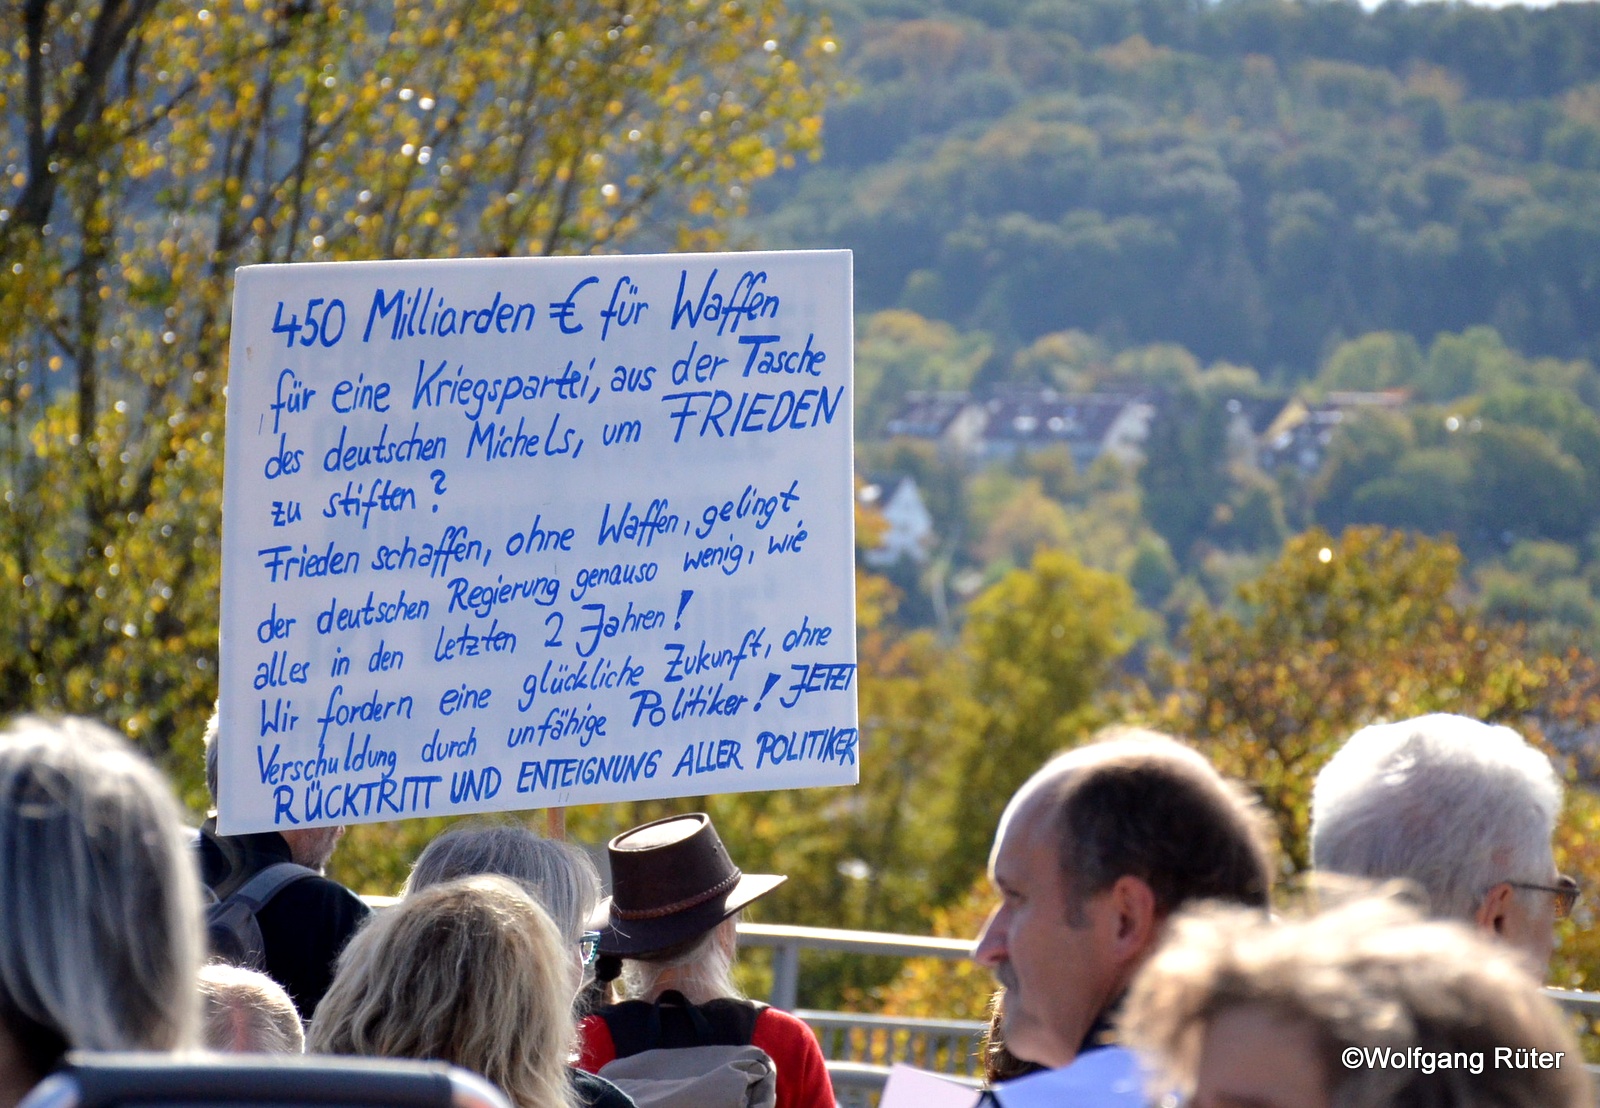 450 Milliarden € für Waffen
für eine Kriegspartei, aus der Tasche
des deutschen Michels, um FRIEDEN
zu stiften?
Frieden schaffen, ohne Waffen, gelingt
der deutschen Regierung genauso wenig, wie
alles in den letzten 2 Jahren!
Wir fordern eine glückliche Zukunft, ohne
Verschuldung durch unfähige Politiker! JETZT
RÜCKTRITT UND ENTEIGNUNG ALLER POLITIKER
©Wolfgang Rüter